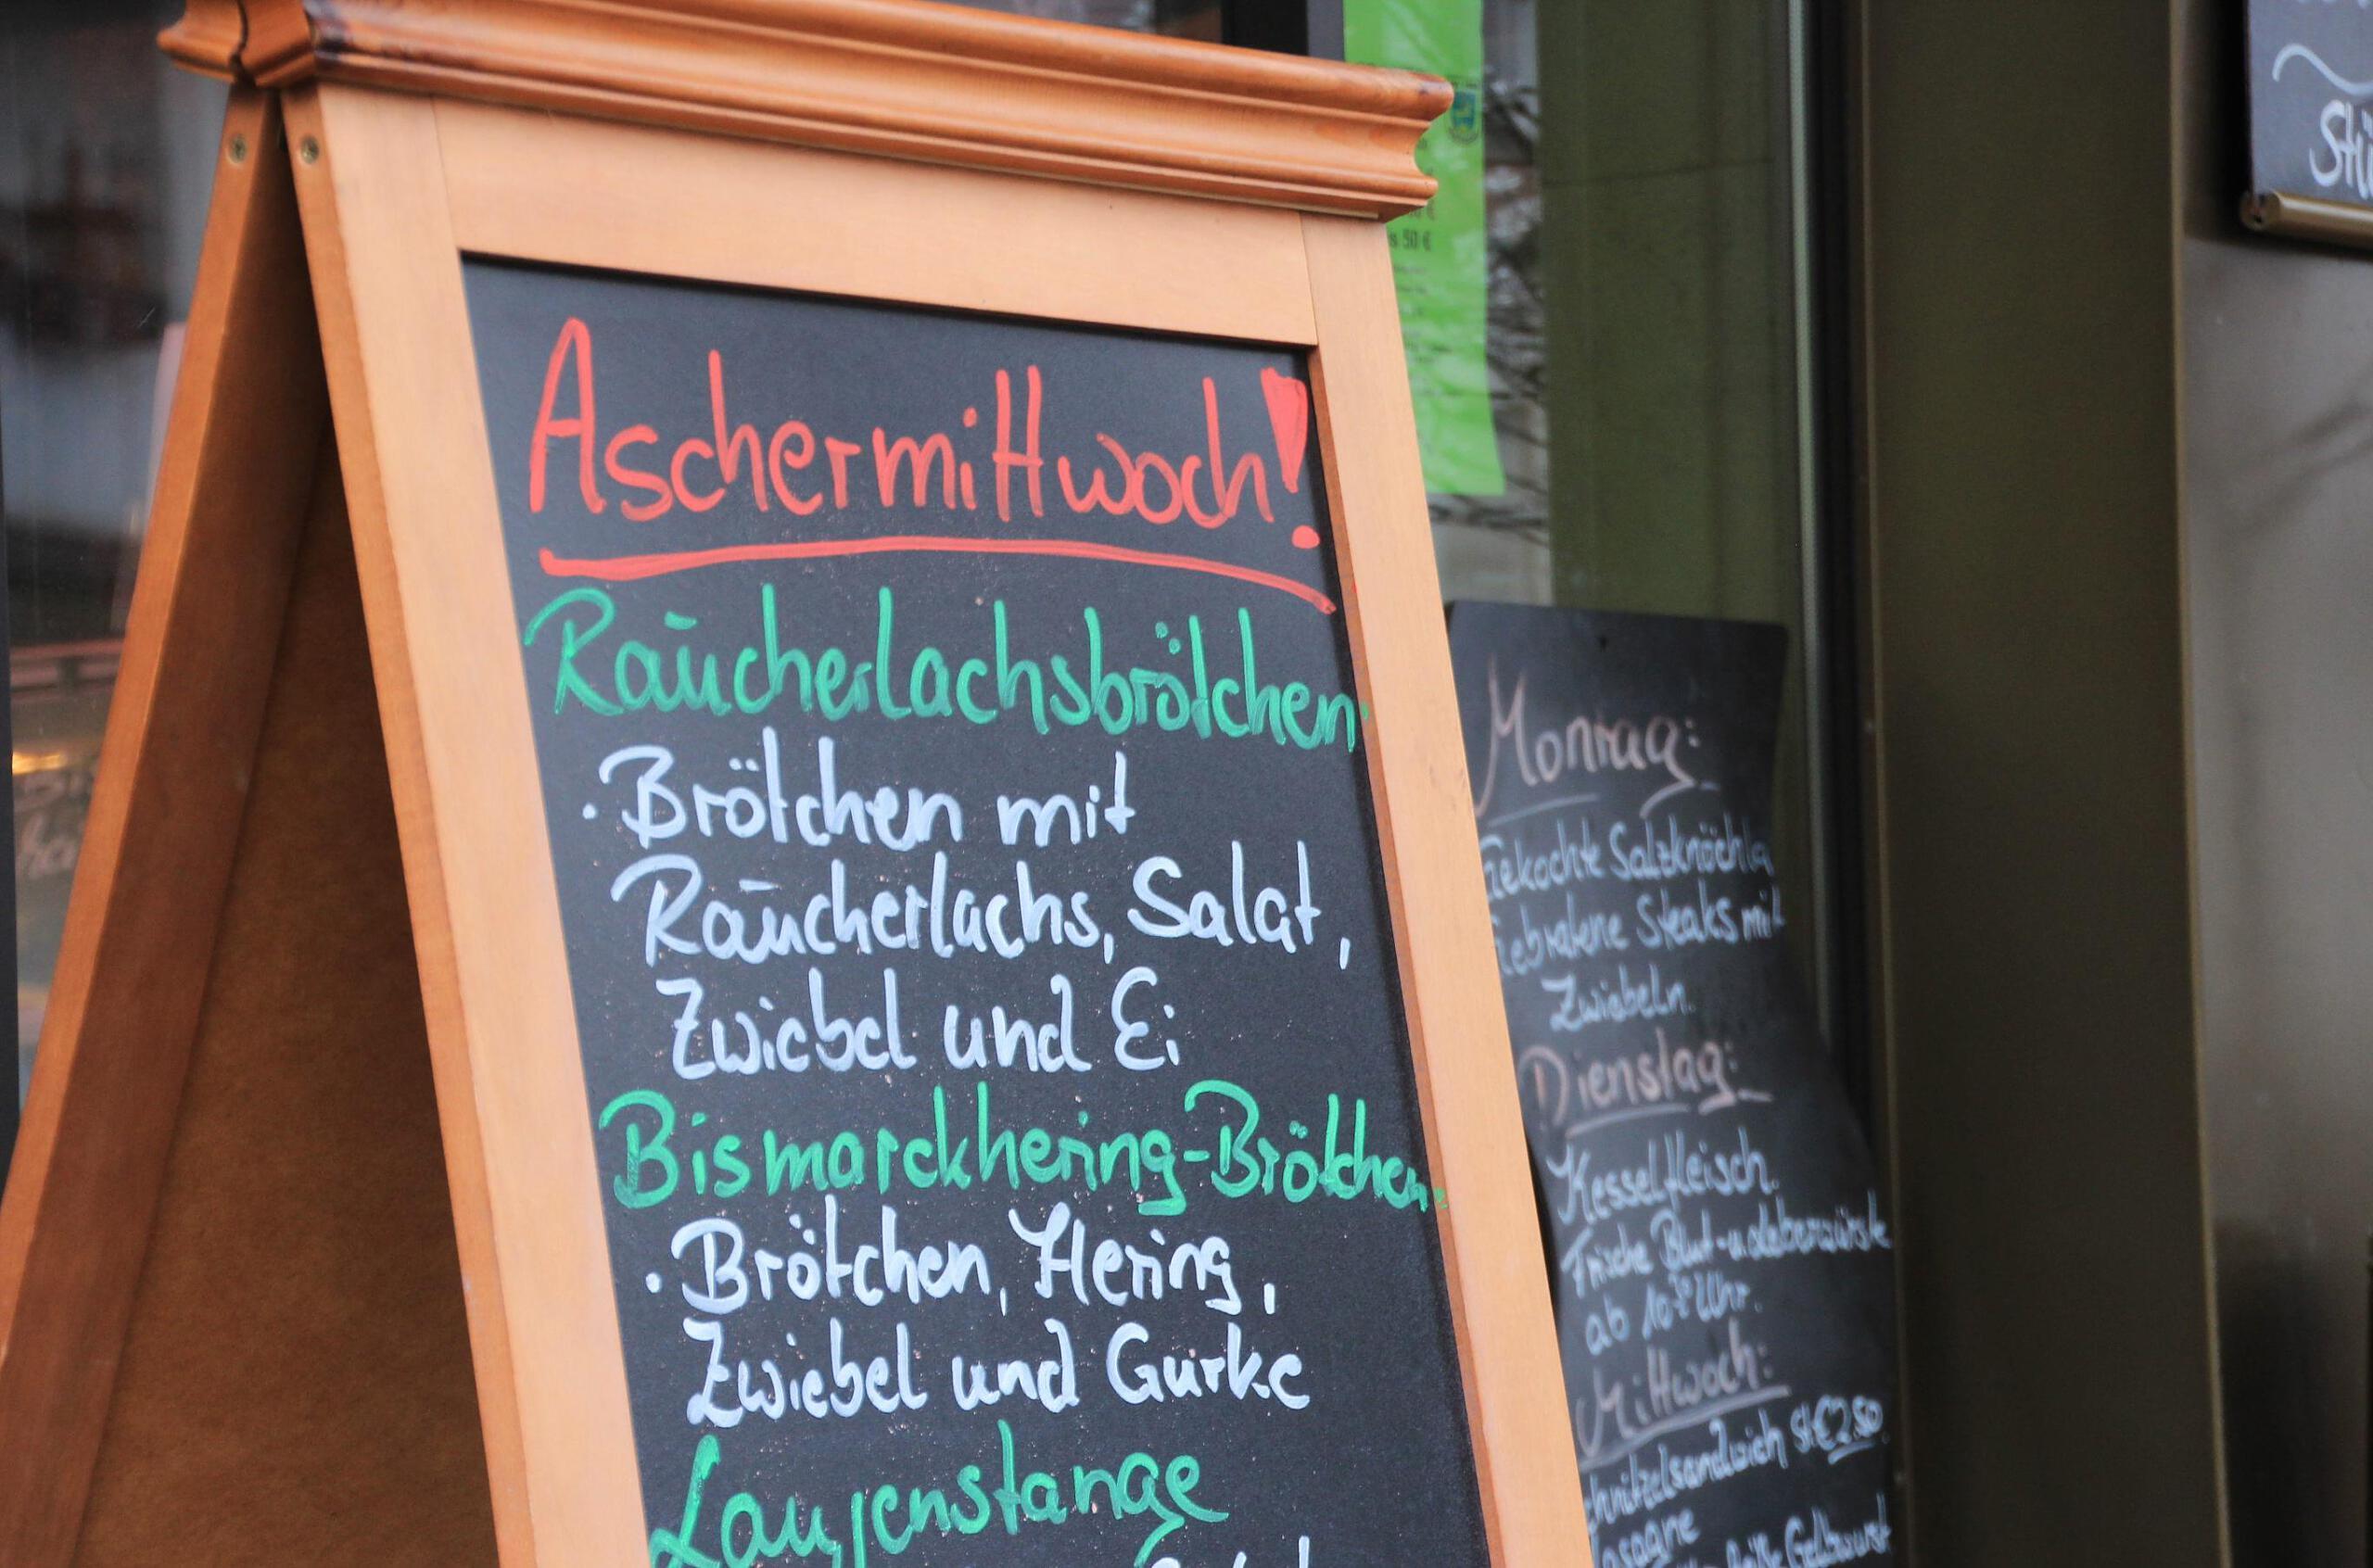 Aschermittwoch!
Räucherlachsbrötchen:
· Brötchen mit
Räucherlachs, Salat,
Zwiebel und Ei
Bismarckhering-Brötchen:
· Brötchen, Hering,
Zwiebel und Gurke
Laugenstange
Montag:
Gekochte Salzknöchla
Gebratene Steaks mit
Zwiebeln.
Dienstag:
Kesselfleisch.
Frische Blut- u. Leberwürste
ab 10 Uhr.
Mittwoch:
chnitzelsandwich St. € 2.50
Lasagne
Gelbwurst
50 €